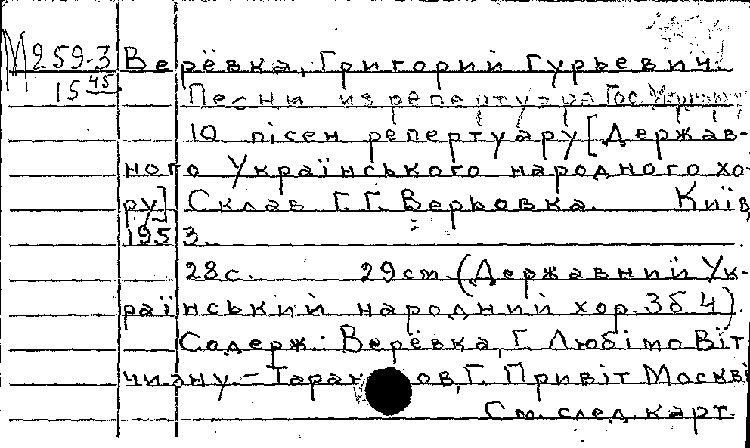 М259-3 Верёвка, Григорий Гурьевич.
15 45 Песни из репертуара Гос.
10 пісен репертуару [Держав-
ного Українського народного хо-
ру] Склав Г. Г. Верьовка. Київ,
1953.
28 с. 29 см (Державний Ук-
раїнський народний хор. Зб 4).
Содерж: Верёвка, Г. Любімо Віт
чизну. – Г. Привіт Москві
См. след. карт.